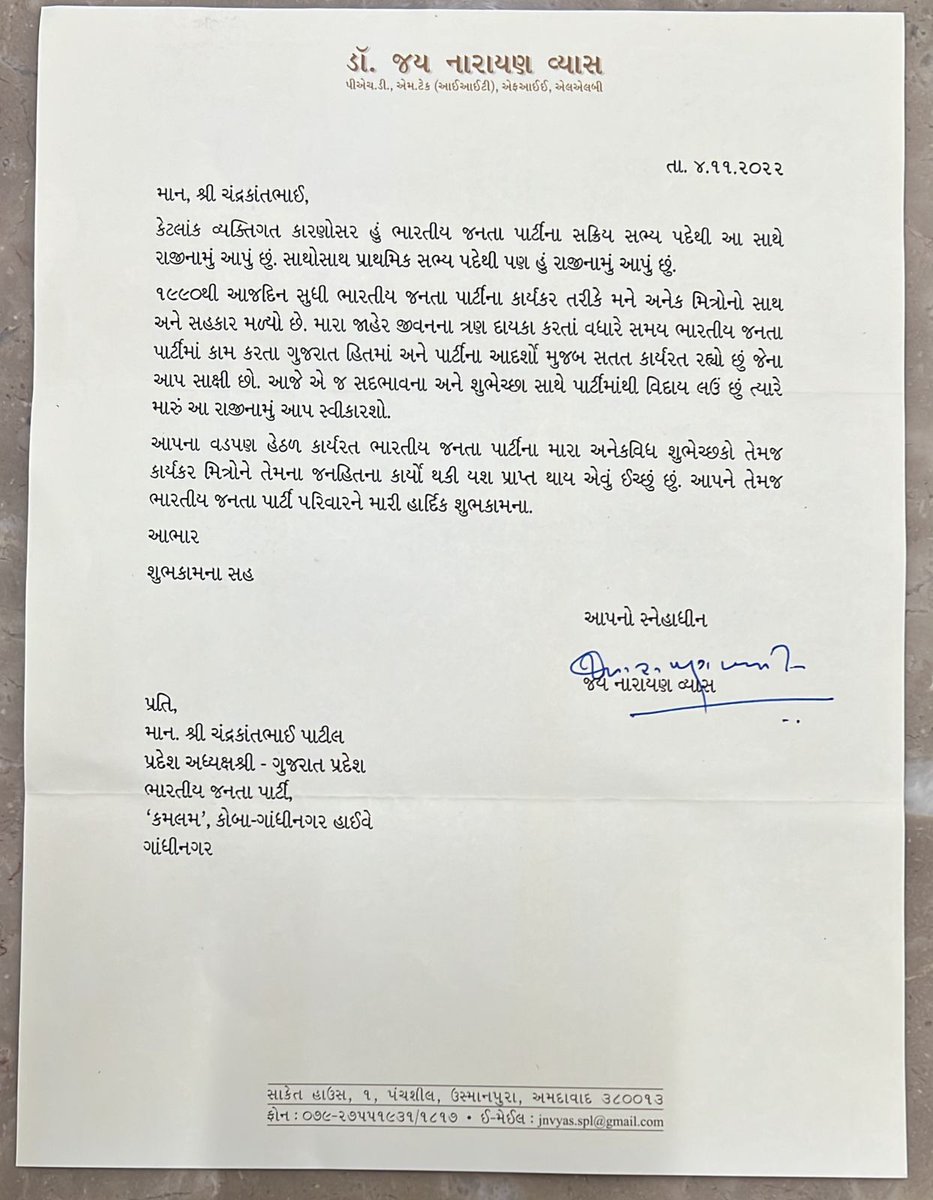 ડૉ. જય નારાયણ વ્યાસ
પીએચ.ડી., એમ.ટેક (આઈઆઈટી), એફઆઈઈ, એલએલબી
તા. ૪.૧૧.૨૦૨૨
માન, શ્રી ચંદ્રકાંતભાઈ,
કેટલાંક વ્યક્તિગત કારણોસર હું ભારતીય જનતા પાર્ટીના સક્રિય સભ્ય પદેથી આ સાથે
રાજીનામું આપું છું. સાથોસાથ પ્રાથમિક સભ્ય પદેથી પણ હું રાજીનામું આપું છું.
૧૯૯૦થી આજદિન સુધી ભારતીય જનતા પાર્ટીના કાર્યકર તરીકે મને અનેક મિત્રોનો સાથ
અને સહકાર મળ્યો છે. મારા જાહેર જીવનના ત્રણ દાયકા કરતાં વધારે સમય ભારતીય જનતા
પાર્ટીમાં કામ કરતા ગુજરાત હિતમાં અને પાર્ટીના આદર્શો મુજબ સતત કાર્યરત રહ્યો છું જેના
આપ સાક્ષી છો. આજે એ જ સદભાવના અને શુભેચ્છા સાથે પાર્ટીમાંથી વિદાય લઉં છું ત્યારે
મારું આ રાજીનામું આપ સ્વીકારશો.
આપના વડપણ હેઠળ કાર્યરત ભારતીય જનતા પાર્ટીના મારા અનેકવિધ શુભેચ્છકો તેમજ
કાર્યકર મિત્રોને તેમના જનહિતના કાર્યો થકી યશ પ્રાપ્ત થાય એવું ઈચ્છું છું. આપને તેમજ
ભારતીય જનતા પાર્ટી પરિવારને મારી હાર્દિક શુભકામના.
આભાર
શુભકામના સહ
આપનો સ્નેહાધીન
જય નારાયણ વ્યાસ
પ્રતિ,
માન. શ્રી ચંદ્રકાંતભાઈ પાટીલ
પ્રદેશ અધ્યક્ષશ્રી - ગુજરાત પ્રદેશ
ભારતીય જનતા પાર્ટી,
‘કમલમ’, કોબા-ગાંધીનગર હાઈવે
ગાંધીનગર
સાકેત હાઉસ, ૧, પંચશીલ, ઉસ્માનપુરા, અમદાવાદ ૩૮૦૦૧૩
ફોન : ૦૭૯-૨૭૫૫૧૯૩૧/૧૮૧૭ • ઈ-મેઈલ : jnvyas.spl@gmail.com